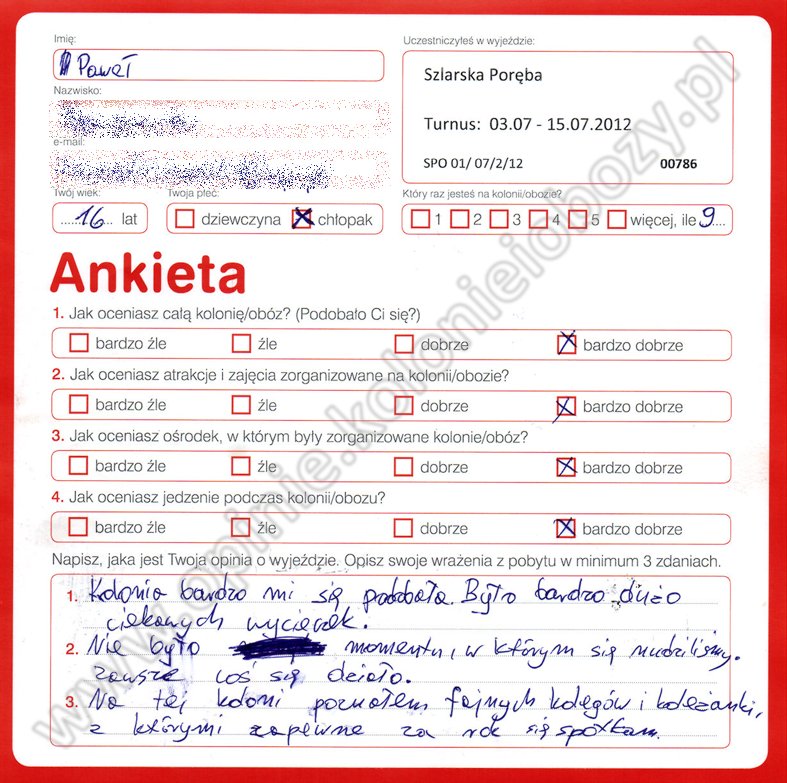 Imię:
Paweł
Nazwisko:
e-mail:
Twój wiek:
Twoja płeć:
16 lat
dziewczyna chłopak
Uczestniczyłeś w wyjeździe:
Szlarska Poręba
Turnus: 03.07 - 15.07.2012
SPO 01/ 07/2/12 00786
Który raz jesteś na kolonii/obozie?
1 2 3 4 5 więcej, ile 9
Ankieta
1. Jak oceniasz całą kolonię/obóz? (Podobało Ci się?)
bardzo źle źle dobrze bardzo dobrze
2. Jak oceniasz atrakcje i zajęcia zorganizowane na kolonii/obozie?
bardzo źle źle dobrze bardzo dobrze
3. Jak oceniasz ośrodek, w którym były zorganizowane kolonie/obóz?
bardzo źle źle dobrze bardzo dobrze
4. Jak oceniasz jedzenie podczas kolonii/obozu?
bardzo źle źle dobrze bardzo dobrze
Napisz, jaka jest Twoja opinia o wyjeździe. Opisz swoje wrażenia z pobytu w minimum 3 zdaniach.
1. Kolonia bardzo mi się podobała. Było bardzo dużo
ciekawych wycieczek.
2. Nie było momentu, w którym się nudziliśmy.
zawsze coś się działo.
3. Na tej koloni poznałem fajnych kolegów i koleżanki,
z którymi zapewne za rok się spotkam.
www.opinie.kolonieiobozy.pl